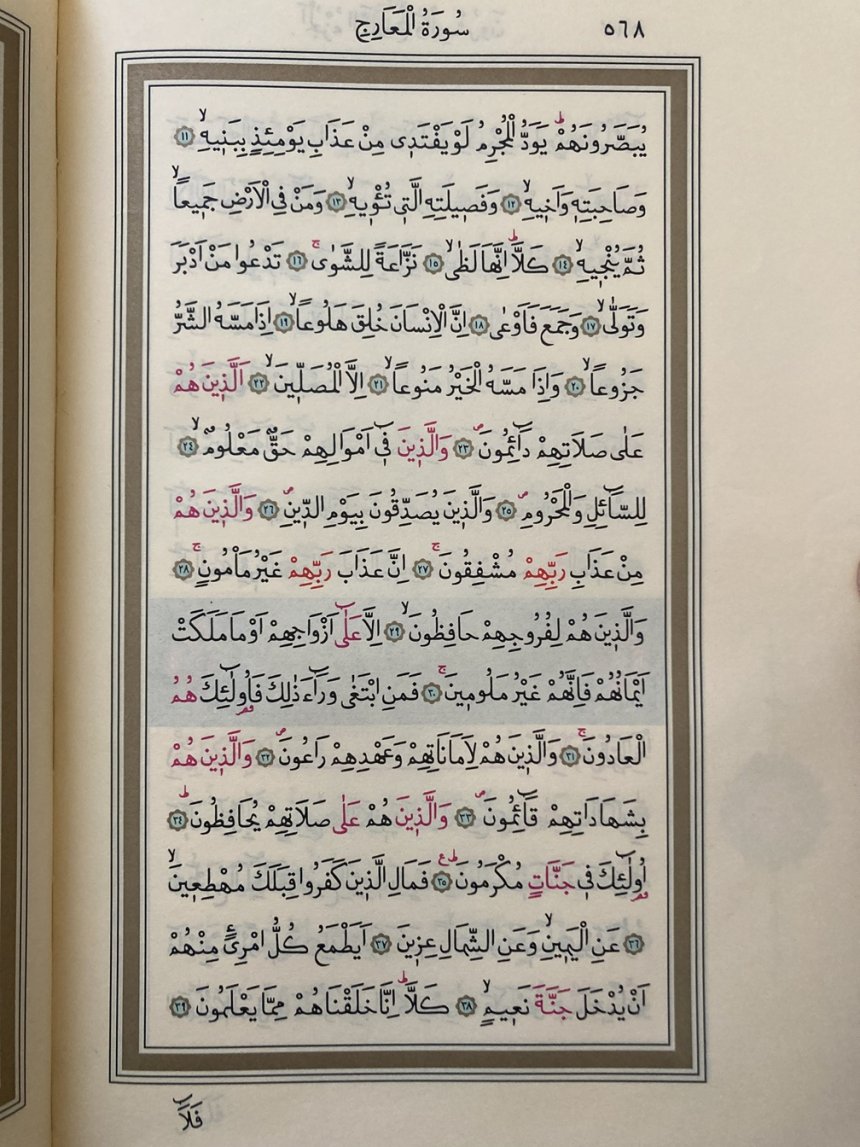 سُورَةُ الْمَعَارِجِ ٥٦٨
يُبَصَّرُونَهُمْۜ يَوَدُّ الْمُجْرِمُ لَوْ يَفْتَدٖى مِنْ عَذَابِ يَوْمِئِذٍ بِبَنٖيهِۙ ﴿١١﴾
وَصَاحِبَتِهٖ وَاَخٖيهِۙ ﴿١٢﴾ وَفَصٖيلَتِهِ الَّتٖى تُـْٔوٖيهِۙ ﴿١٣﴾ وَمَنْ فِى الْاَرْضِ جَمٖيعًاۙ
ثُمَّ يُنْجٖيهِۙ ﴿١٤﴾ كَلَّاۜ اِنَّهَا لَظٰىۙ ﴿١٥﴾ نَزَّاعَةً لِلشَّوٰىۚ ﴿١٦﴾ تَدْعُوا مَنْ اَدْبَرَ
وَتَوَلّٰىۙ ﴿١٧﴾ وَجَمَعَ فَاَوْعٰى ﴿١٨﴾ اِنَّ الْاِنْسَانَ خُلِقَ هَلُوعًاۙ ﴿١٩﴾ اِذَا مَسَّهُ الشَّرُّ
جَزُوعًاۙ ﴿٢٠﴾ وَاِذَا مَسَّهُ الْخَيْرُ مَنُوعًاۙ ﴿٢١﴾ اِلَّا الْمُصَلّٖينَۙ ﴿٢٢﴾ اَلَّذٖينَ هُمْ
عَلٰى صَلَاتِهِمْ دَٓائِمُونَۖ ﴿٢٣﴾ وَالَّذٖينَ فٖٓى اَمْوَالِهِمْ حَقٌّ مَعْلُومٌۙ ﴿٢٤﴾
لِلسَّٓائِلِ وَالْمَحْرُومِۖ ﴿٢٥﴾ وَالَّذٖينَ يُصَدِّقُونَ بِيَوْمِ الدّٖينِۖ ﴿٢٦﴾ وَالَّذٖينَ هُمْ
مِنْ عَذَابِ رَبِّهِمْ مُشْفِقُونَۚ ﴿٢٧﴾ اِنَّ عَذَابَ رَبِّهِمْ غَيْرُ مَأْمُونٍۚ ﴿٢٨﴾
وَالَّذٖينَ هُمْ لِفُرُوجِهِمْ حَافِظُونَۙ ﴿٢٩﴾ اِلَّا عَلٰٓى اَزْوَاجِهِمْ اَوْ مَا مَلَكَتْ
اَيْمَانُهُمْ فَاِنَّهُمْ غَيْرُ مَلُومٖينَۚ ﴿٣٠﴾ فَمَنِ ابْتَغٰى وَرَٓاءَ ذٰلِكَ فَاُو۬لٰٓئِكَ هُمُ
الْعَادُونَۚ ﴿٣١﴾ وَالَّذٖينَ هُمْ لِاَمَانَاتِهِمْ وَعَهْدِهِمْ رَاعُونَۖ ﴿٣٢﴾ وَالَّذٖينَ هُمْ
بِشَهَادَاتِهِمْ قَٓائِمُونَۖ ﴿٣٣﴾ وَالَّذٖينَ هُمْ عَلٰى صَلَاتِهِمْ يُحَافِظُونَۜ ﴿٣٤﴾
اُو۬لٰٓئِكَ فٖى جَنَّاتٍ مُكْرَمُونَۜ ع ﴿٣٥﴾ فَمَالِ الَّذٖينَ كَفَرُوا قِبَلَكَ مُهْطِعٖينَۙ
﴿٣٦﴾ عَنِ الْيَمٖينِۙ وَعَنِ الشِّمَالِ عِزٖينَ ﴿٣٧﴾ اَيَطْمَعُ كُلُّ امْرِئٍ مِنْهُمْ
اَنْ يُدْخَلَ جَنَّةَ نَعٖيمٍۙ ﴿٣٨﴾ كَلَّاۜ اِنَّا خَلَقْنَاهُمْ مِمَّا يَعْلَمُونَ ﴿٣٩﴾
فَلَٓا